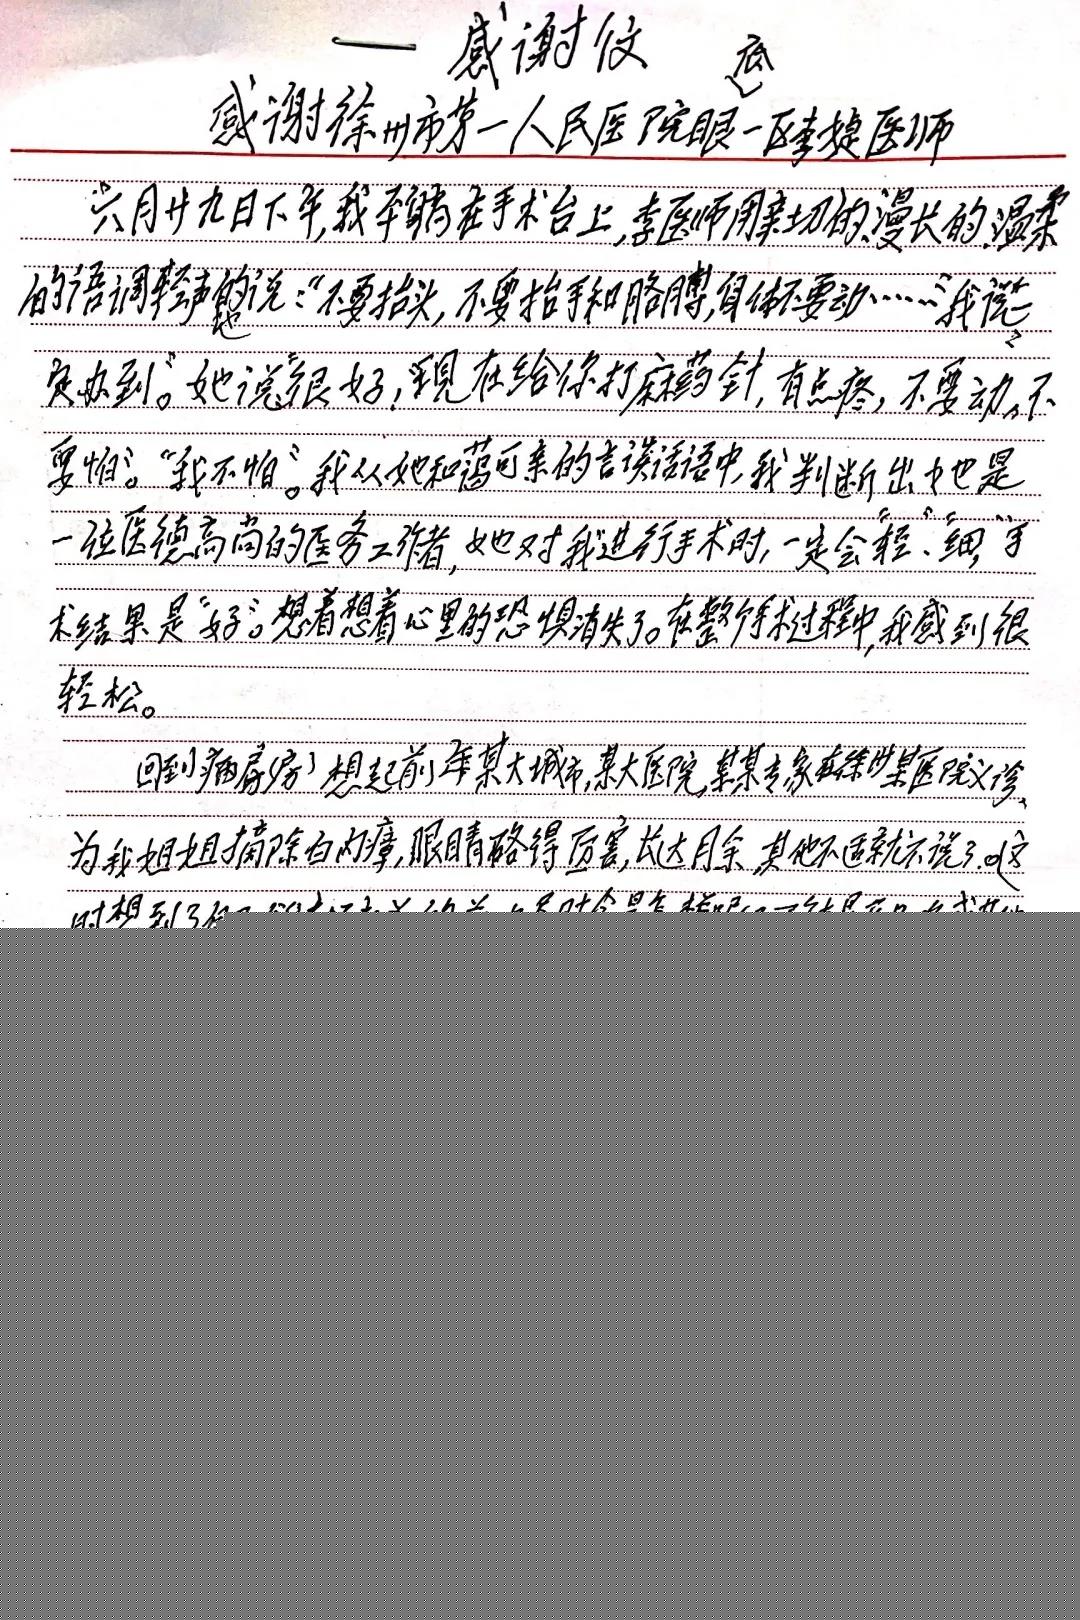 感谢信
底
感谢徐州市第一人民医院眼一区李捷医师
六月廿九日下午,我平躺在手术台上,李医师用亲切的、漫长的、温柔
的语调轻声的说:“不要抬头,不要抬手和胳膊,身体不要动……”我说“一
地
定办到”。她说“很好,现在给你打麻药针,有点疼,不要动。不
要怕”。“我不怕”。我从她和蔼可亲的言谈话语中,我判断出她是
一位医德高尚的医务工作者,她对我进行手术时,一定会“轻”、“细”,手
术结果是“好”。想着想着心里的恐惧消失了。在整个手术过程中,我感到很
轻松。
回到病房(房)想起前年某大城市,某大医院,某某专家在徐州某医院义诊,
为我姐姐摘除白内障,眼睛硌得厉害,长达月余,其他不适就不说了。这
时想到了